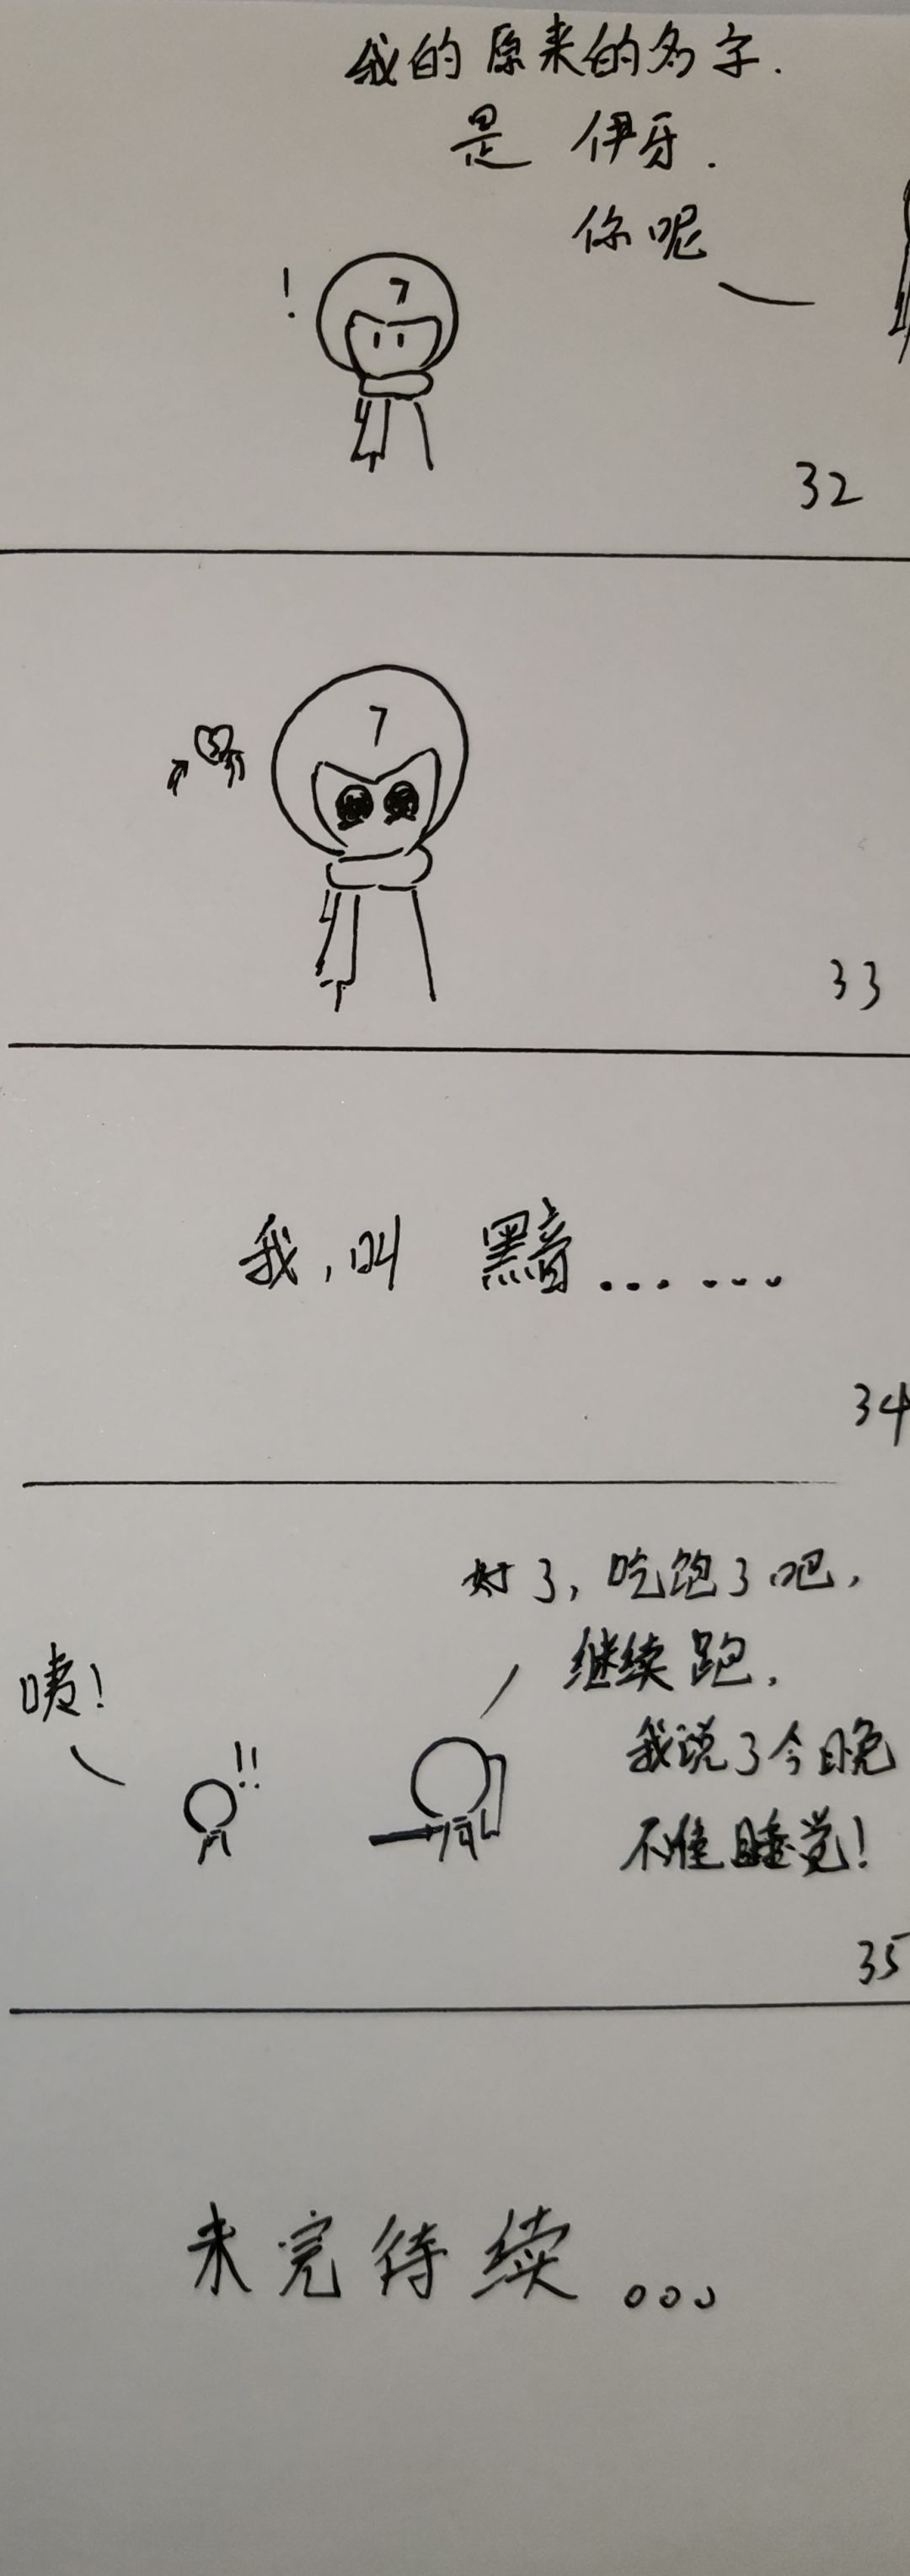 我的原来的名字.
是 伊牙.
你呢
!
7
32
7
33
我,叫 黯......
34
好了,吃饱了吧,
继续跑.
咦!
!!
我说了今晚
不准睡觉!
35
未完待续...